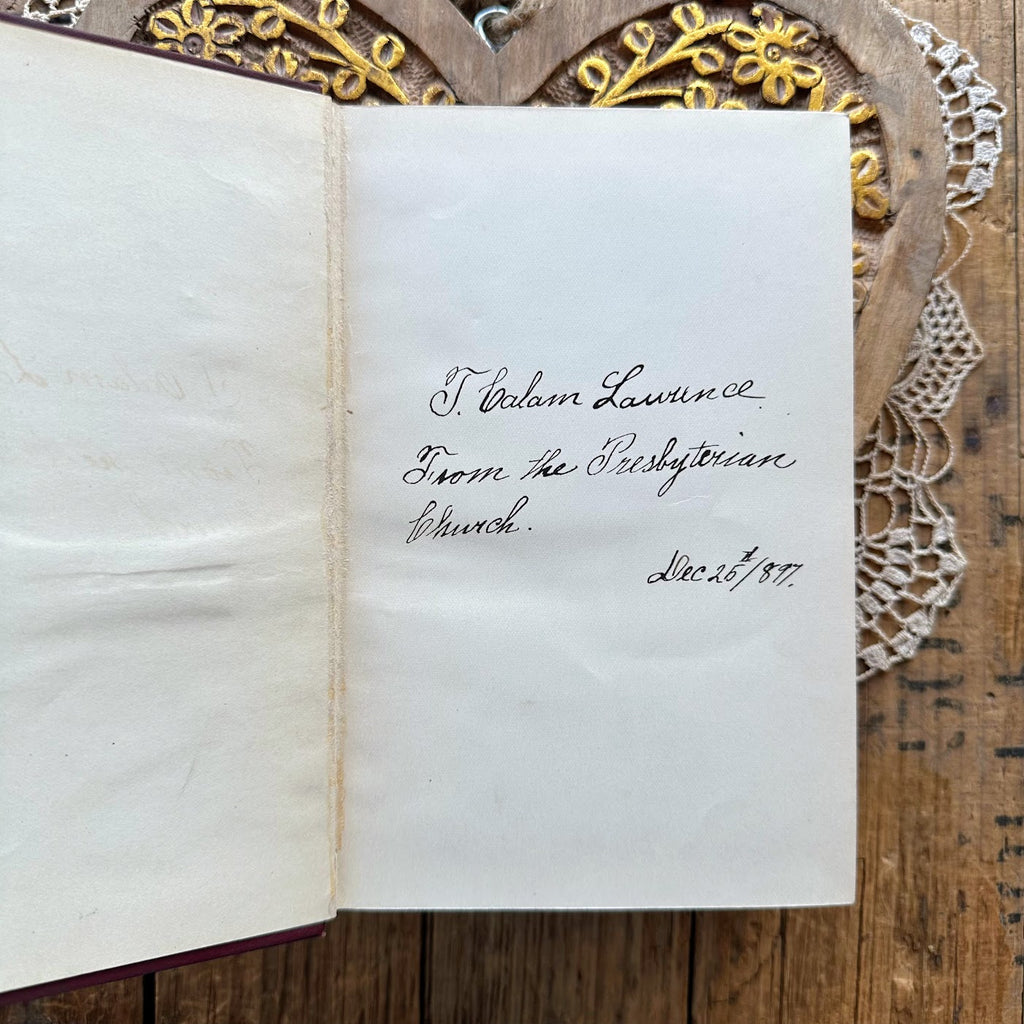 T. Calam Lawrence.
From the Presbyterian
Church.
Dec 25th/897.